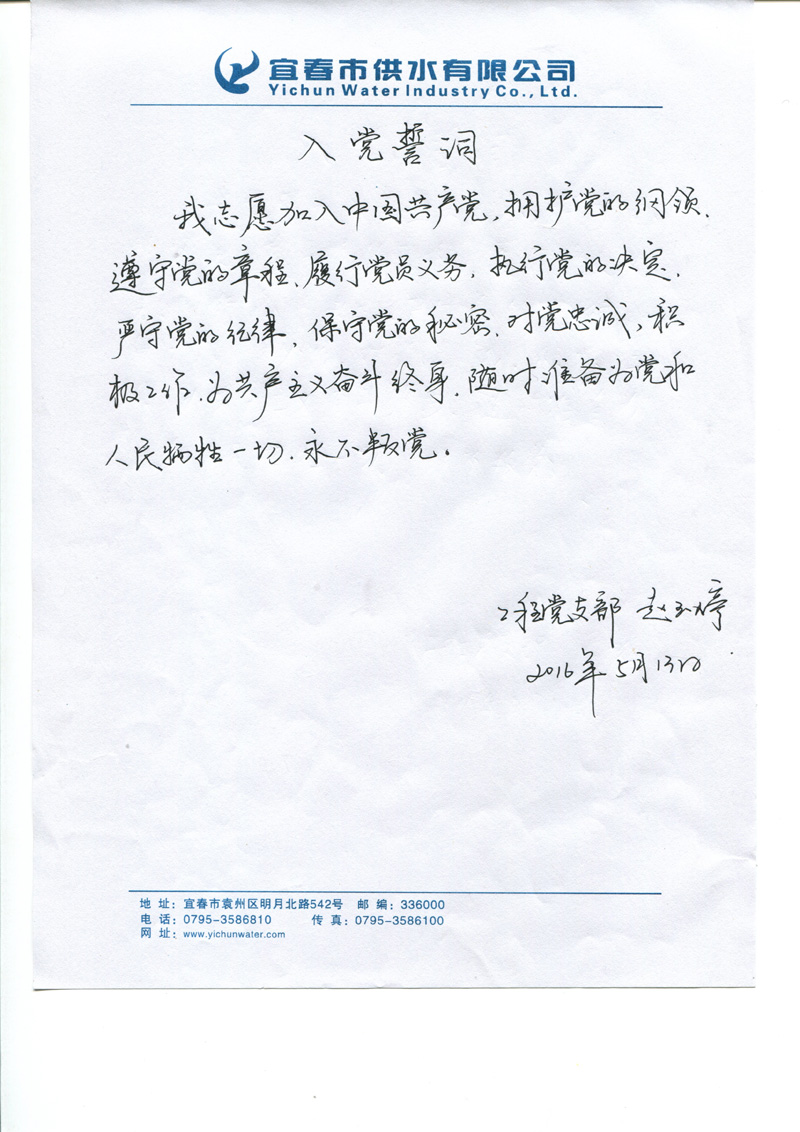 宜春市供水有限公司
Yichun Water Industry Co., Ltd.
入党誓词
我志愿加入中国共产党，拥护党的纲领，
遵守党的章程，履行党员义务，执行党的决定，
严守党的纪律，保守党的秘密，对党忠诚，积
极工作，为共产主义奋斗终身，随时准备为党和
人民牺牲一切，永不叛党。
工程党支部 赵玉婷
2016年5月13日
地 址：宜春市袁州区明月北路542号 邮 编：336000
电 话：0795-3586810 传 真：0795-3586100
网 址：www.yichunwater.com